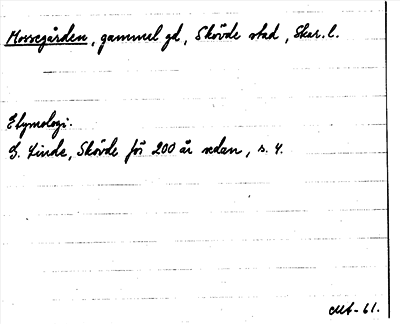 Mossegården, gammul gd, Skövde stad, Skar. l.
Etymologi.
G. Linde, Skövde för 200 år sedan, s. 4.
-61.